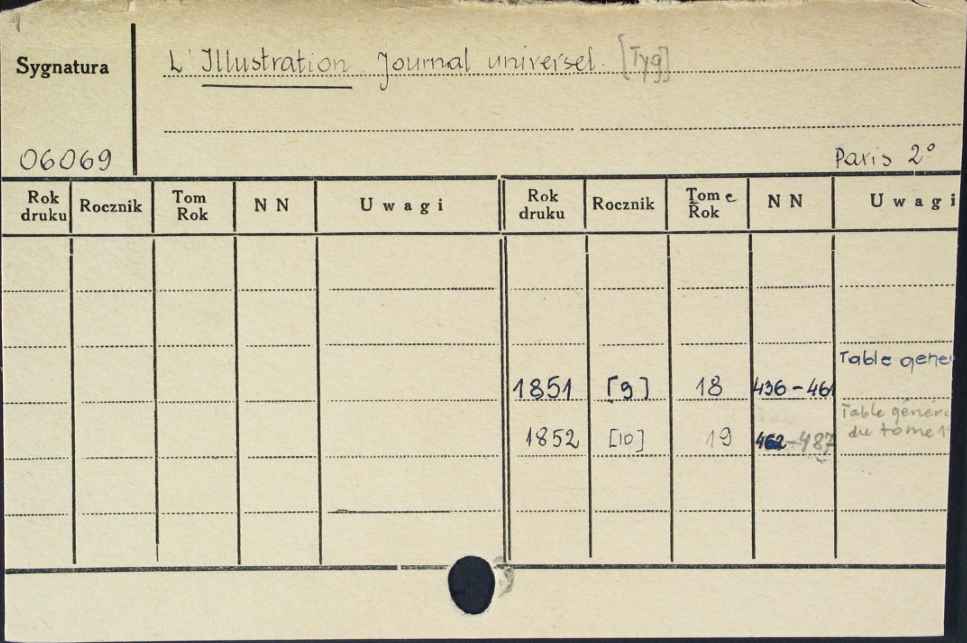 Sygnatura
L'Illustration Journal universel. [Tyg]
06069
Paris 2°
Rok druku
Rocznik
Tom Rok
NN
Uwagi
Rok druku
Rocznik
Tome Rok
NN
Uwagi
Table géné
1851 [9] 18 436-461
Table généra
1852 [10] 19 462-487 du tome 1